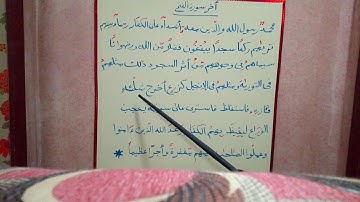 آخر سورة الفتح
محمد رسول الله والذين معه أشداء على الكفار رحماء بينهم
تراهم ركعا سجدا يبتغون فضلا من الله ورضوانا
سيماهم في وجوههم من أثر السجود ذلك مثلهم
في التورية ومثلهم في الانجيل كزرع أخرج شطئه
فآزره فاستغلظ فاستوى على سوقه يعجب
الزراع ليغيظ بهم الكفار وعد الله الذين ءامنوا
وعملوا الصالحات منهم مغفرة وأجرا عظيما *